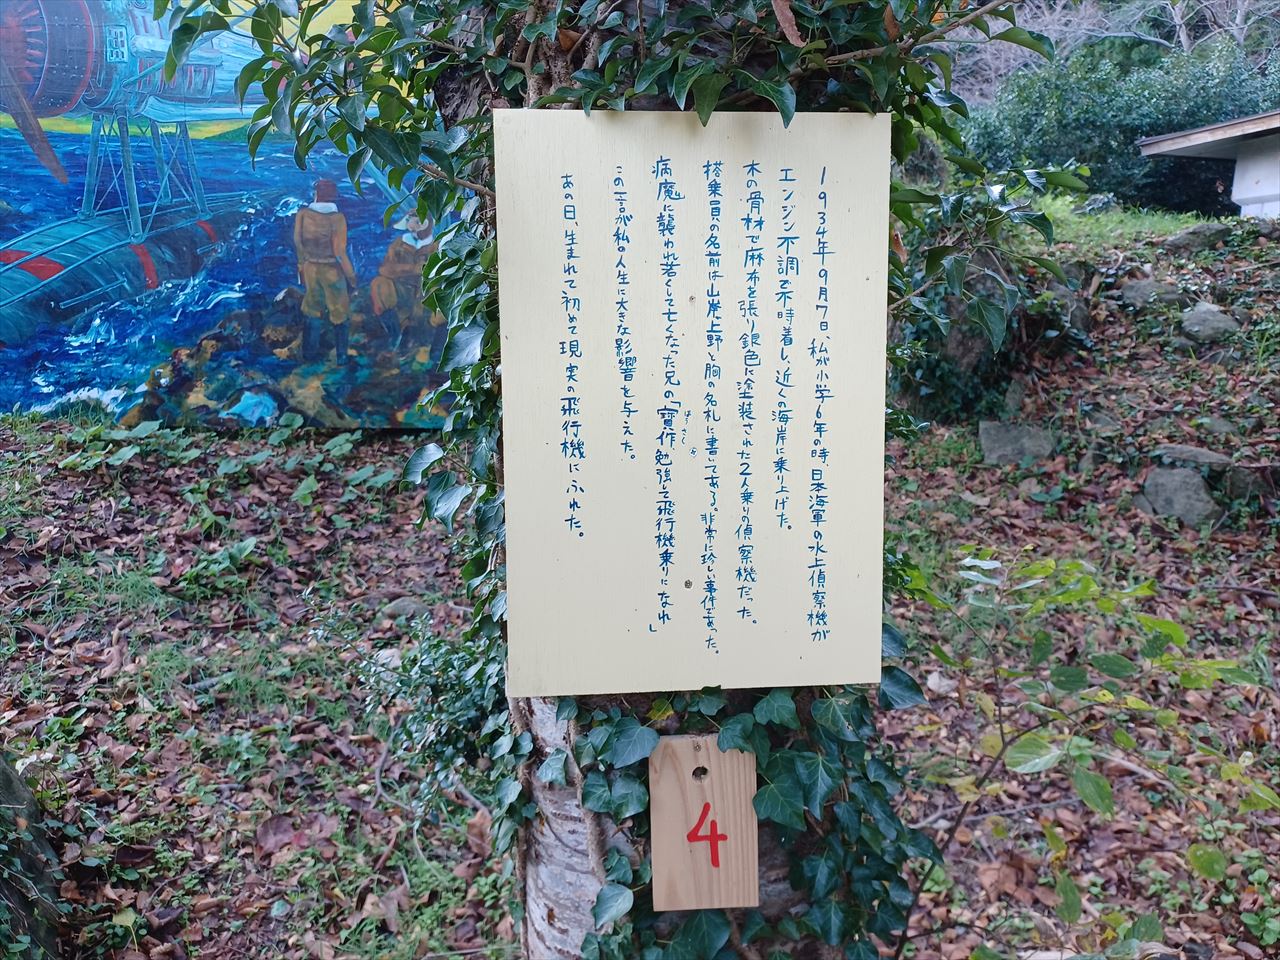 1934年9月7日、私が小学6年の時、日本海軍の水上偵察機が
エンジン不調で不時着し、近くの海岸に乗り上げた。
木の骨材で麻布を張り銀色に塗装された2人乗りの偵察機だった。
搭乗員の名前は山岸、上野と胸の名札に書いてある。非常に珍しい事件であった。
病魔に襲われ若くして亡くなった兄の「寶作、勉強して飛行機乗りになれ」
ほうさく
この言が私の人生に大きな影響を与えた。
あの日、生まれて初めて現実の飛行機にふれた。
4